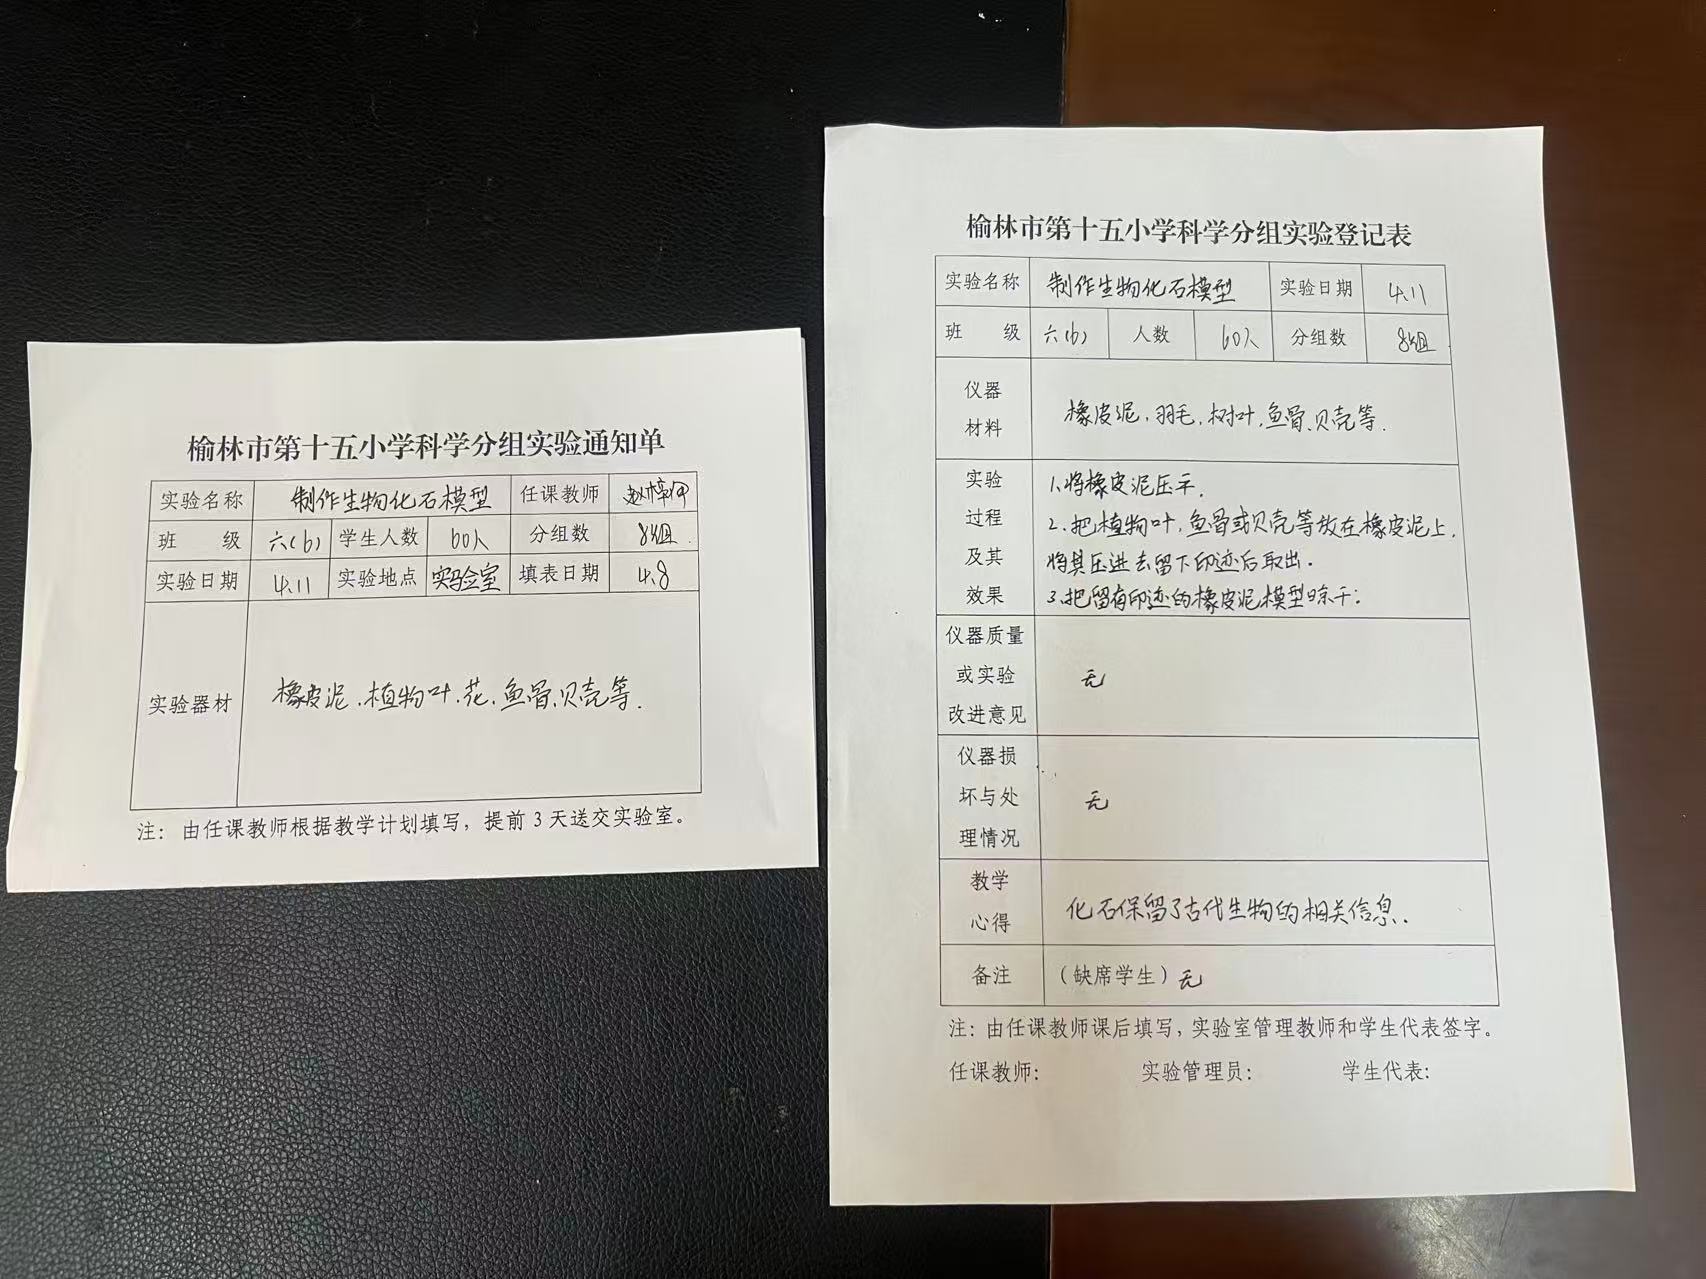 榆林市第十五小学科学分组实验通知单
实验名称 制作生物化石模型 任课教师
班 级 六(6) 学生人数 60人 分组数 8组
实验日期 4.11 实验地点 实验室 填表日期 4.8
实验器材 橡皮泥、植物叶、花、鱼骨、贝壳等.
注：由任课教师根据教学计划填写，提前3天送交实验室。
榆林市第十五小学科学分组实验登记表
实验名称 制作生物化石模型 实验日期 4.11
班 级 六(6) 人数 60人 分组数 8组
仪器
材料
橡皮泥，羽毛，树叶，鱼骨、贝壳等.
实验
过程
及其
效果
1.将橡皮泥压平.
2.把植物叶，鱼骨或贝壳等放在橡皮泥上，
将其压进去留下印迹后取出.
3.把留有印迹的橡皮泥模型晾干；
仪器质量
或实验
改进意见
无
仪器损
坏与处
理情况
无
教学
心得
化石保留了古代生物的相关信息.
备注 (缺席学生) 无
注：由任课教师课后填写，实验室管理教师和学生代表签字。
任课教师： 实验管理员： 学生代表：